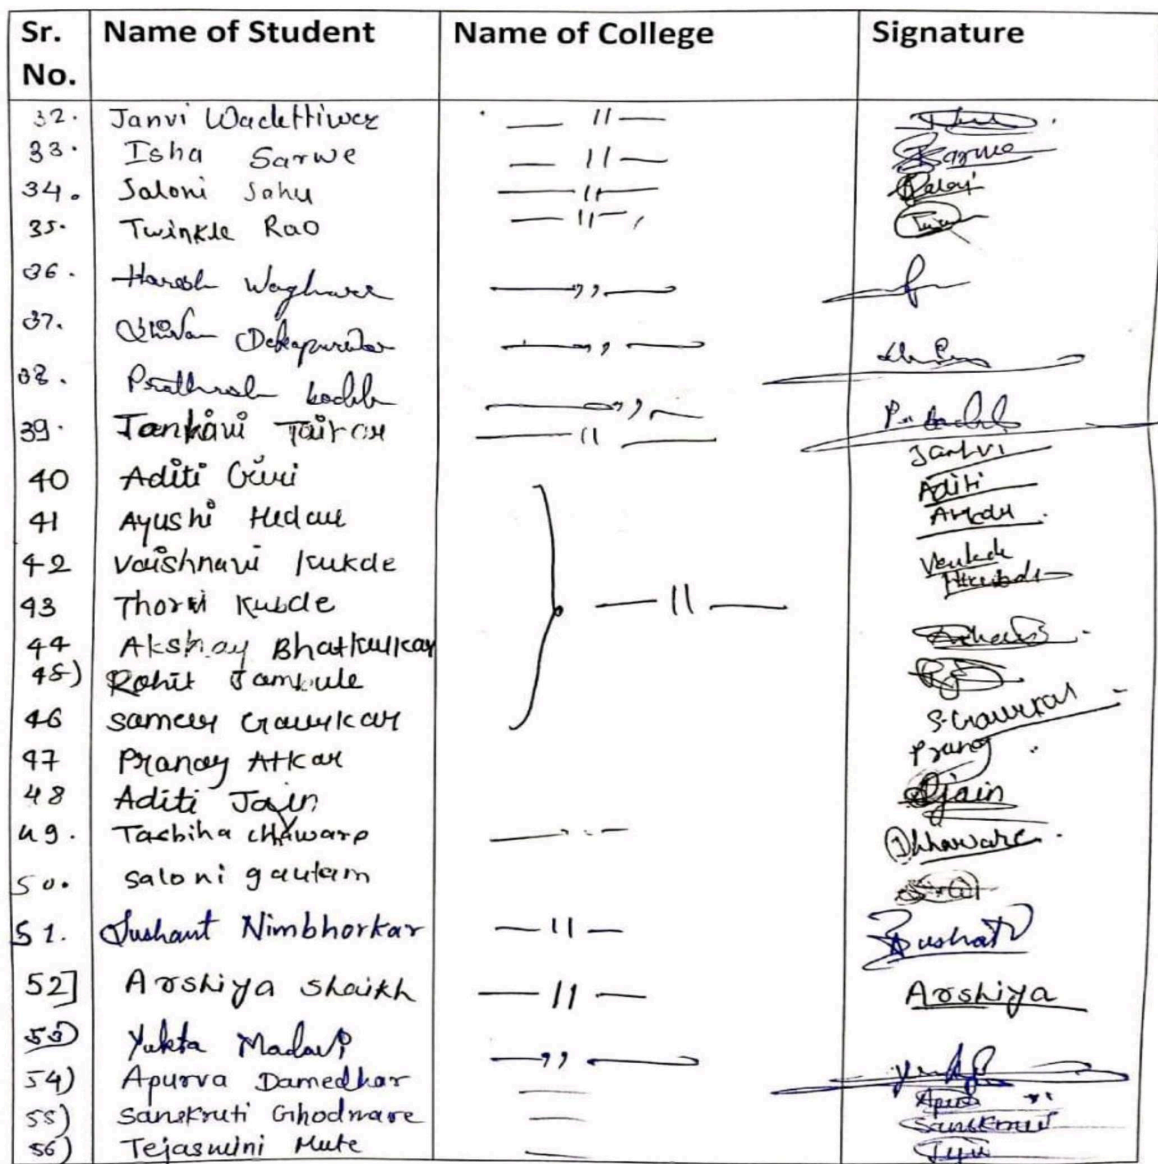 Sr. No. Name of Student Name of College Signature
32. Janvi Wadettiwar — 11 —
33. Isha Sarwe — 11 — Sarwe
34. Saloni Sahu — 11 — Saloni
35. Twinkle Rao — 11 —
36. Harsh Waghare — ,, —
37. — ,, —
38. — ,, —
39. Tairam — 11 — Janhvi
40 Aditi Giri Aditi
41 Ayushi Hedau
42 Vaishnavi Kukde
43 Kubde — 11 —
44 Akshay Bhatkulkar
45) Rohit Jambule
46 Sameer Gawrkar S. Gawrkar
47 Pranay Atkar Pranay
48 Aditi Jain Ajain
49. Tasbiha Chaware — Chhaware
50. saloni gautam
51. Sushant Nimbhorkar — 11 — Sushant
52] Arshiya shaikh — 11 — Arshiya
53) Yukta Madavi — ,, —
54) Apurva Damedhar — Apurva
55) Sanskruti Ghodmare — Sanskruti
56) Tejaswini Mute — Teju